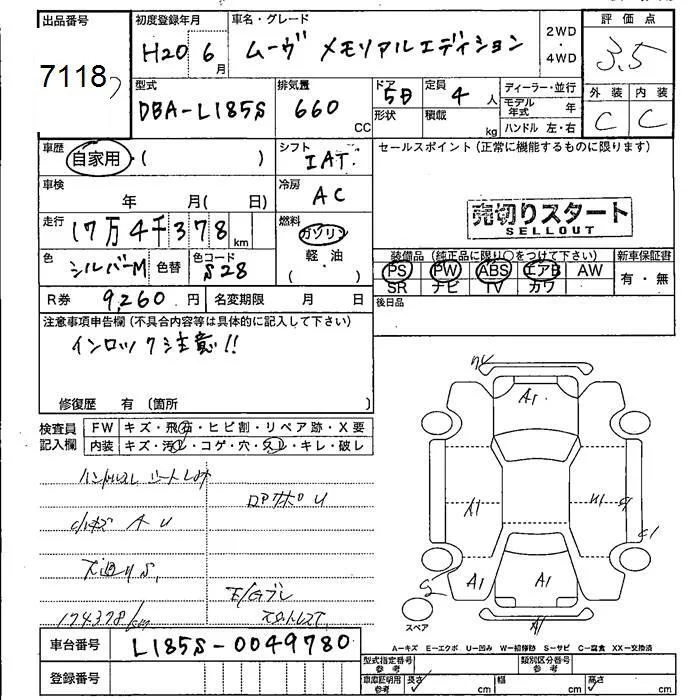 出品番号 初度登録年月 車名・グレード 2WD・4WD 評価点
7118 H20 6月 ムーヴ メモリアルエディション 3.5
型式 排気量 ドア 定員 ディーラー・並行 外装 内装
DBA-L185S 660 CC 5D 4人 モデル年式 年 C C
形状 積載 kg ハンドル 左・右
車歴 自家用・( ) シフト IAT セールスポイント(正常に機能するものに限ります)
車検 年 月( 日) 冷房 AC
売切りスタート
SELLOUT
走行 17万4千378km 燃料 ガソリン
軽油
( )
色 シルバーM 色替 色コード S28
装備品(純正品に限り○をつけて下さい) 新車保証書
PS PW ABS エアB AW 有・無
SR ナビ TV カワ
R券 9,260円 名変期限 月 日 後日品
注意事項申告欄(不具合内容等は具体的に記入して下さい)
インロック注意!!
修復歴 有 (箇所 )
検査員記入欄 FW キズ・飛石・ヒビ割・リペア跡・X要
内装 キズ・汚レ・コゲ・穴・スレ・キレ・破レ
ハンドルスレ シートレカキ
ロアサポU
小キズ A U
下廻りS
E/Gブレ
174378/km
A1
A1
A1
A1
S
スペア
A1
A-キズ E-エクボ U-凹み W-補修跡 S-サビ C-腐食 XX-交換済
車台番号 L185S-0049780
型式指定番号 参考 類別区分番号 参考
登録番号
車庫証明用 参考 長さ cm 幅 cm 高さ cm